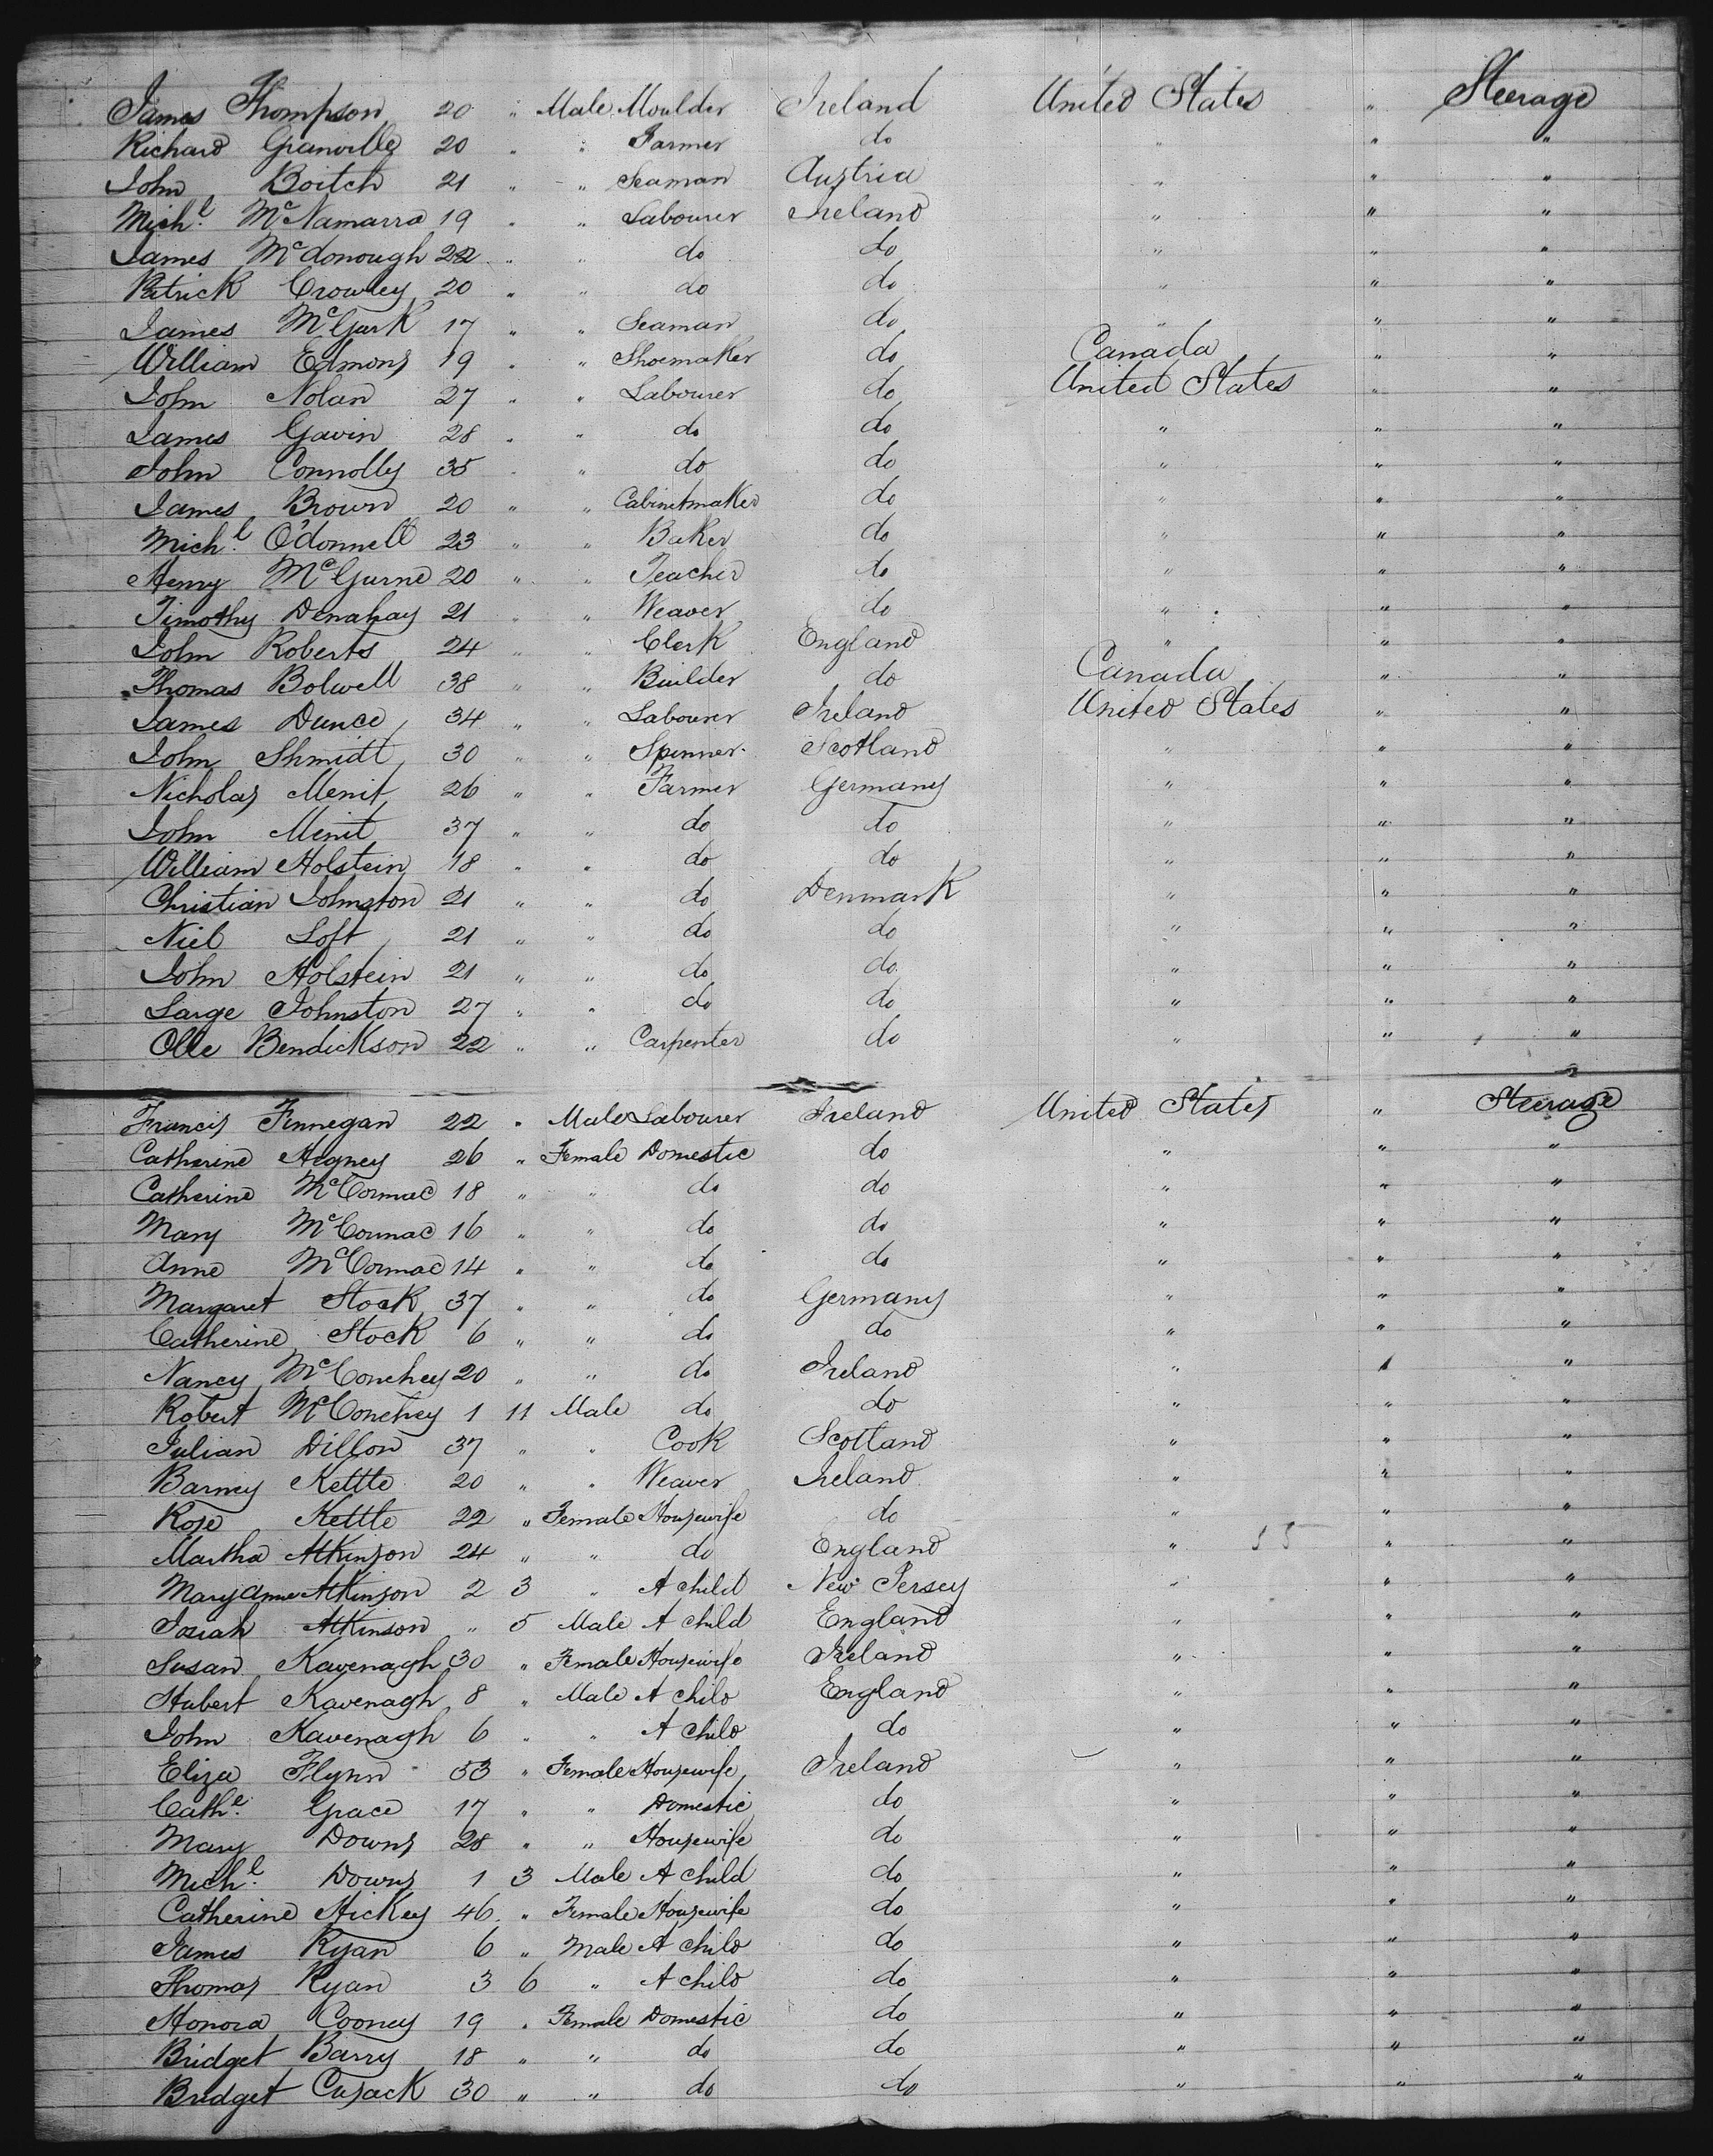 James Thompson 20 " Male Moulder Ireland United States " Steerage
Richard Granville 20 " " Farmer do " " "
John Boitch 21 " " Seaman Austria " " "
Mich.l McNamarra 19 " " Labourer Ireland " " "
James Mcdonough 22 " " do do " " "
Patrick Crowley 20 " " do do " " "
James McGurk 17 " " Seaman do " " "
William Edmons 19 " " Shoemaker do Canada " "
John Nolan 27 " " Labourer do United States " "
James Gavin 28 " " do do " " "
John Connolly 35 " " do do " " "
James Brown 20 " " Cabinetmaker do " " "
Mich.l O'donnell 23 " " Baker do " " "
Henry McGurne 20 " " Teacher do " " "
Timothy Denahay 21 " " Weaver do " " "
John Roberts 24 " " Clerk England " " "
Thomas Bolwell 38 " " Builder do Canada " "
James Dunce 34 " " Labourer Ireland United States " "
John Shmidt 30 " " Spinner Scotland " " "
Nicholas Menit 26 " " Farmer Germany " " "
John Menit 37 " " do do " " "
William Holstein 18 " " do do " " "
Christian Johnston 21 " " do Denmark " " "
Niel Loft 21 " " do do " " "
John Holstein 21 " " do do " " "
Large Johnston 27 " " do do " " "
Olle Bendickson 22 " " Carpenter do " " "
Francis Finnegan 22 " Male Labourer Ireland United States " Steerage
Catherine Hegney 26 " Female Domestic do " " "
Catherine McCormac 18 " " do do " " "
Mary McCormac 16 " " do do " " "
Anne McCormac 14 " " do do " " "
Margaret Stock 37 " " do Germany " " "
Catherine Stock 6 " " do do " " "
Nancy McConchey 20 " " do Ireland " " "
Robert McConchey 1 11 Male do do " " "
Julian Dillon 37 " " Cook Scotland " " "
Barney Kettle 20 " " Weaver Ireland " " "
Rose Kettle 22 " Female Housewife do " " "
Martha Atkinson 24 " " do England " " "
Mary Anne Atkinson 2 3 " A child New Jersey " " "
Josiah Atkinson " 5 Male A child England " " "
Susan Kavenagh 30 " Female Housewife Ireland " " "
Hubert Kavenagh 8 " Male A child England " " "
John Kavenagh 6 " " A child do " " "
Eliza Flynn 53 " Female Housewife Ireland " " "
Cath.e Grace 17 " " Domestic do " " "
Mary Downs 28 " " Housewife do " " "
Mich.l Downs 1 3 Male A child do " " "
Catherine Hickey 46 " Female Housewife do " " "
James Ryan 6 " Male A child do " " "
Thomas Ryan 3 6 " A child do " " "
Honora Cooney 19 " Female Domestic do " " "
Bridget Barry 18 " " do do " " "
Bridget Cusack 30 " " do do " " "